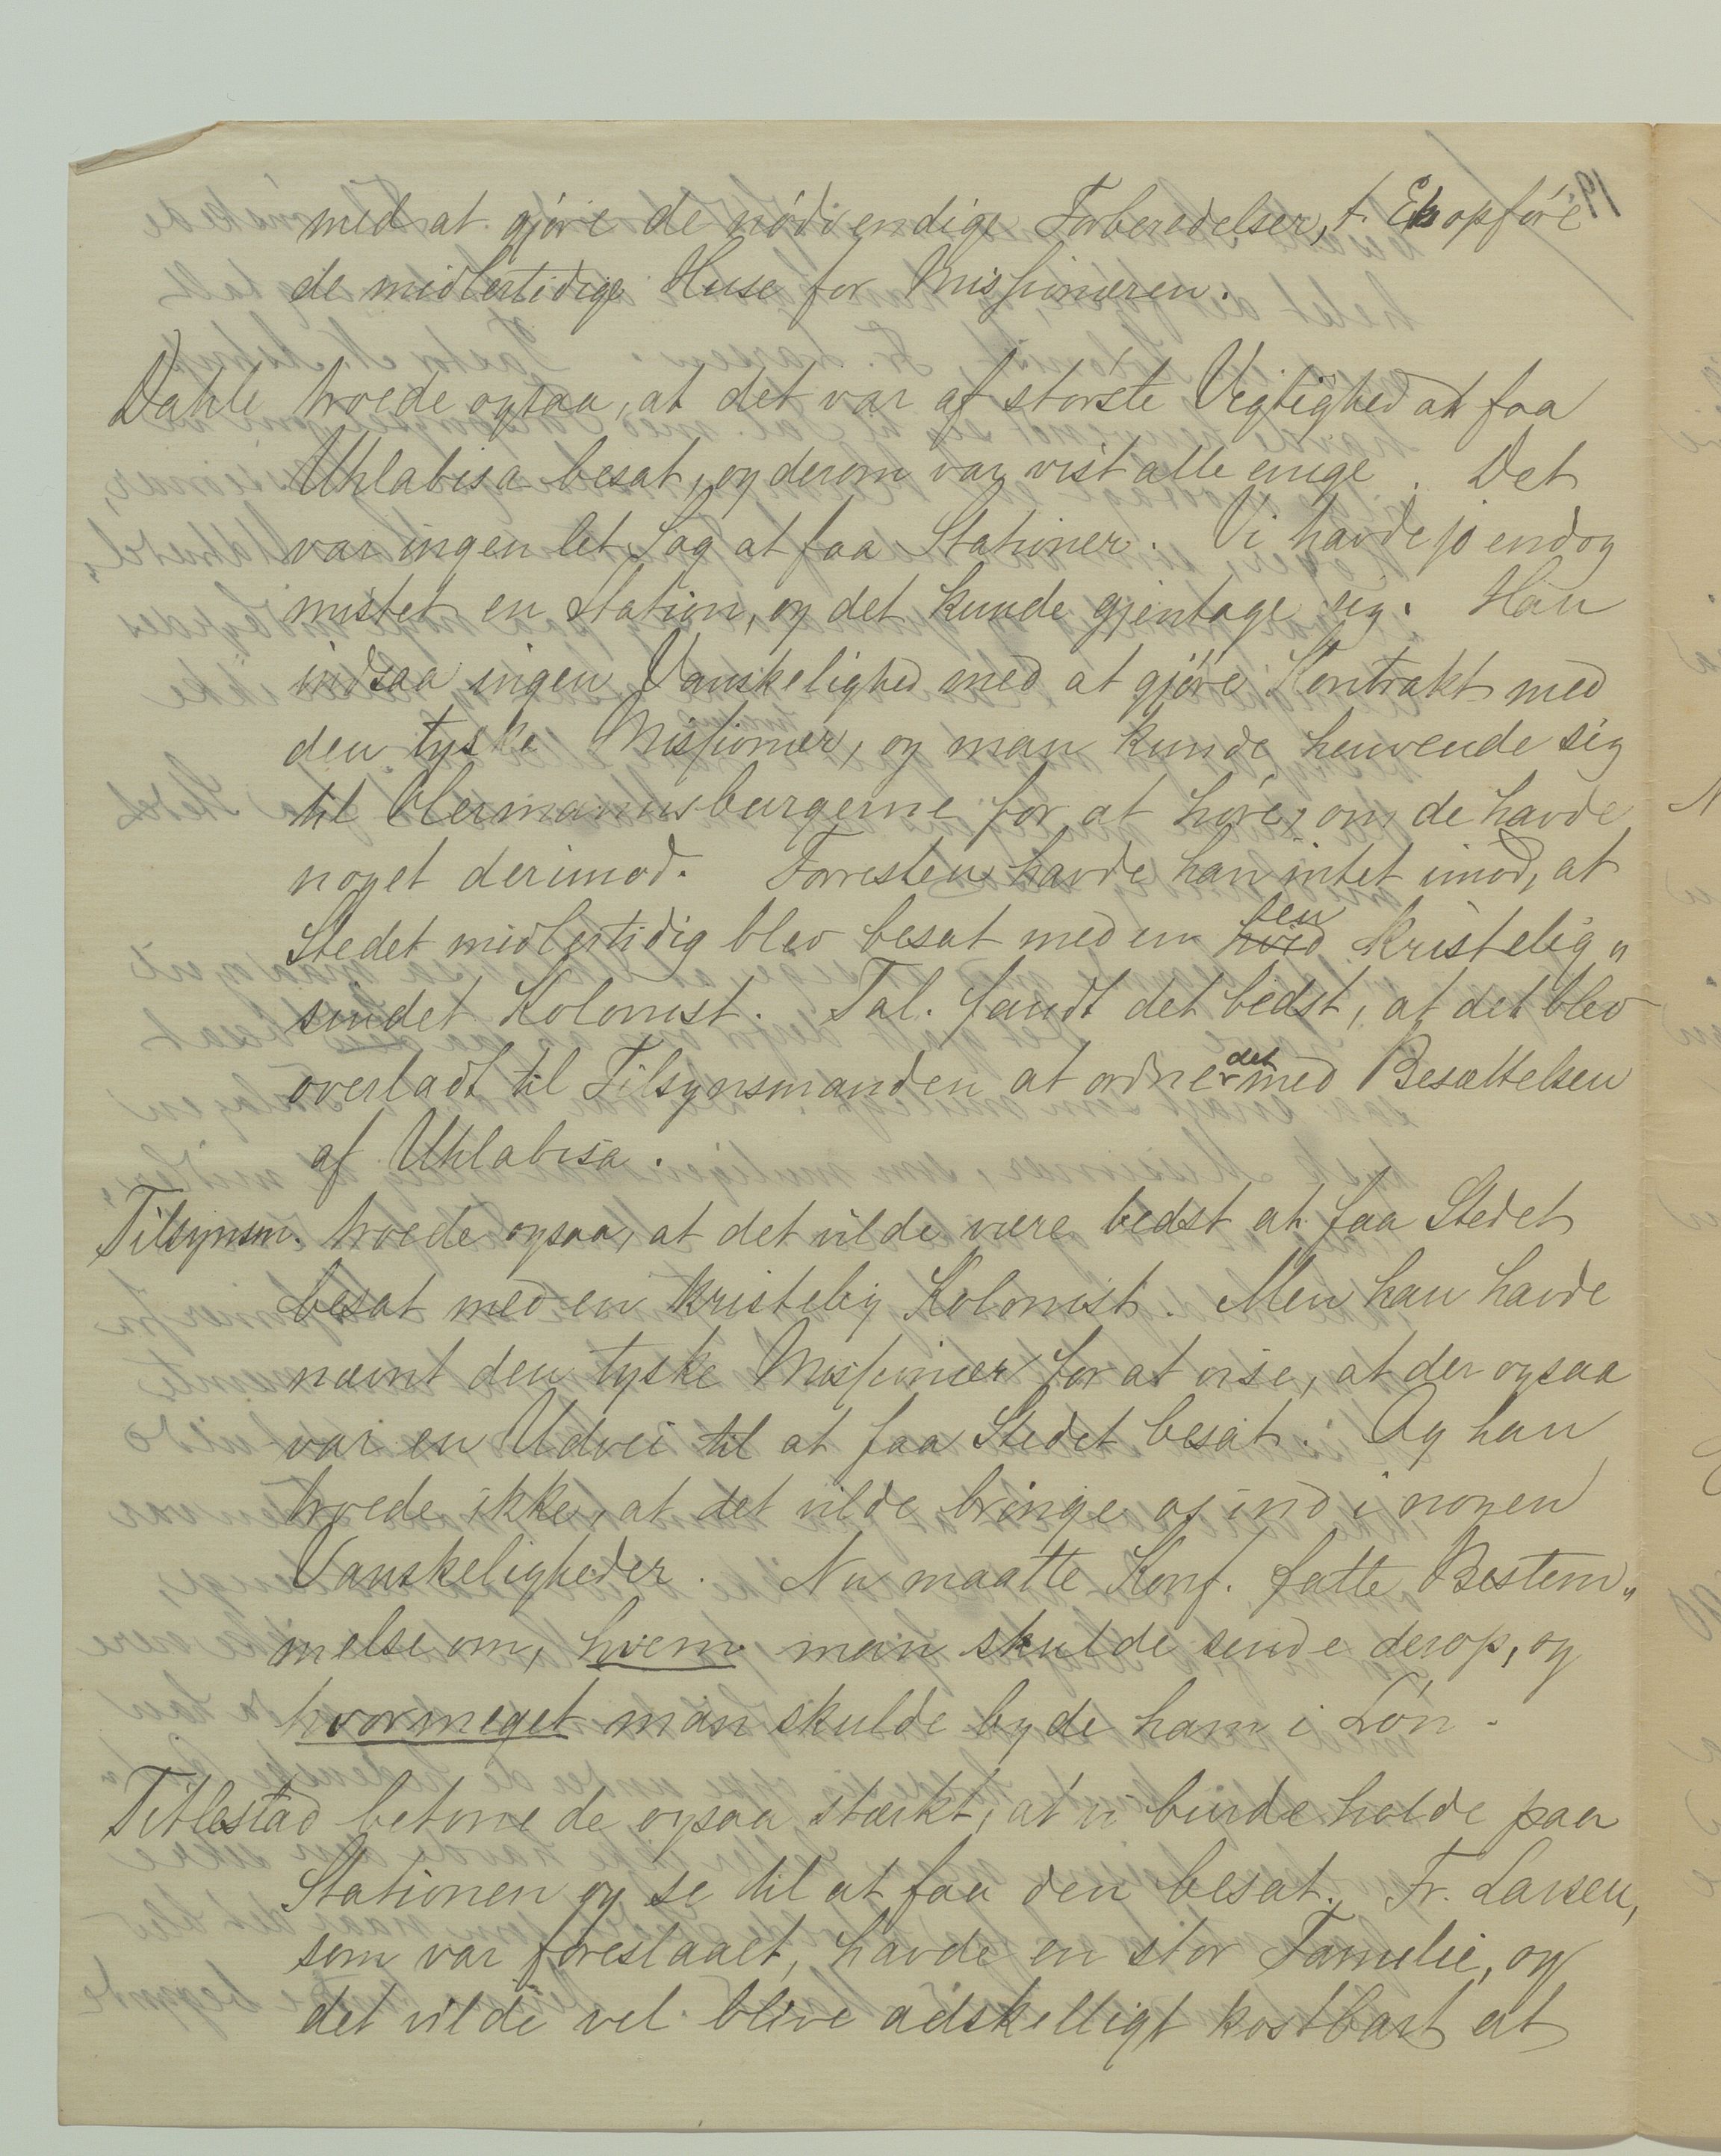 med at gjøre de nødvendige Forberedelser, f. Ex opføre
de midlertidige Huse for Missionæren.
Dahle troede ogsaa, at det var af største Vigtighed at faa
Uhlabisa besat, og derom var vist alle enige. Det
var ingen let Sag at faa Stationer. Vi havde jo endog
mistet en Station, og det kunde gjentage sig. Han
indsaa ingen Vanskelighed med at gjøre Kontrakt med
den tyske Missionær, og man kunde henvende sig
til Hermannsburgerne for at høre, om de havde
noget derimod. Forresten havde han intet imod, at
Stedet midlertidig blev besat med en hvid kristelig"
sindet Kolonist. Tal. fandt det bedst, at det blev
overladt til Tilsynsmanden at ordne det med Besættelsen
af Uhlabisa.
Tilsynsm. troede ogsaa, at det vilde være bedst at faa Stedet
besat med en kristelig Kolonist. Men han havde
nævnt den tyske Missionær for at vise, at der ogsaa
var en Udvei til at faa Stedet besat. Og han
troede ikke, at det vilde bringe os ind i nogen
Vanskeligheder. Nu maatte Konf. fatte Bestem"
melse om, hvem man skulde sende derop, og
hvormeget man skulde byde ham i Løn.
Titlestad betonede ogsaa stærkt, at vi burde holde paa
Stationen og se til at faa den besat. Fr. Larsen,
som var foreslaaet, havde en stor Familie, og
det vilde vel blive adskelligt kostbart at